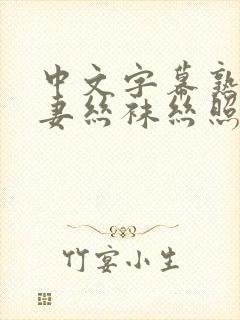 中文字幕熟
妻丝袜丝照
竹宴小生